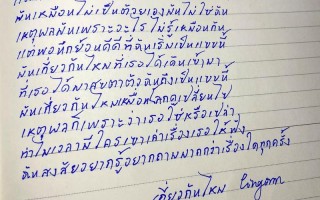 มันเหมือนไม่เป็นตัวเองมันไม่ใช่ฉัน
เหตุผลมันเพราะอะไร ไม่รู้เหมือนกัน
แต่พอนึกย้อนดีดีที่ฉันเริ่มเป็นแบบนี้
มันเกี่ยวกันไหมที่เธอได้เดินเข้ามา
ที่เธอได้มาสบตาตัวฉันถึงเป็นแบบนี้
มันเกี่ยวกันไหมเหมือนโลกดูเปลี่ยนไป
เหตุผลก็เพราะว่าเธอ ใช่หรือเปล่า
ทำไมเวลามีใครเขาเล่าเรื่องเธอให้ฟัง
ฉันสงสัยอยากรู้อยากถามมากกว่าเรื่องใดทุกครั้ง
เกี่ยวกันไหม